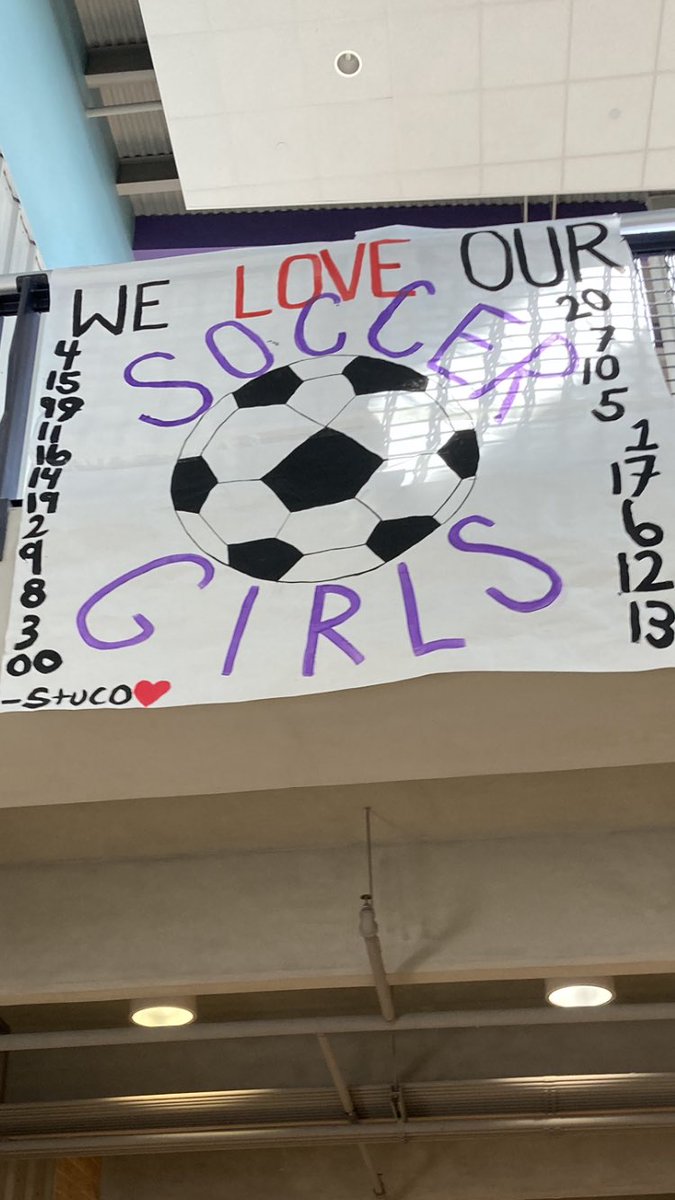 WE LOVE OUR
SOCCER
GIRLS
4
15
99
11
16
14
19
2
9
8
3
00
20
7
10
5
1
17
6
12
13
-StUCO❤